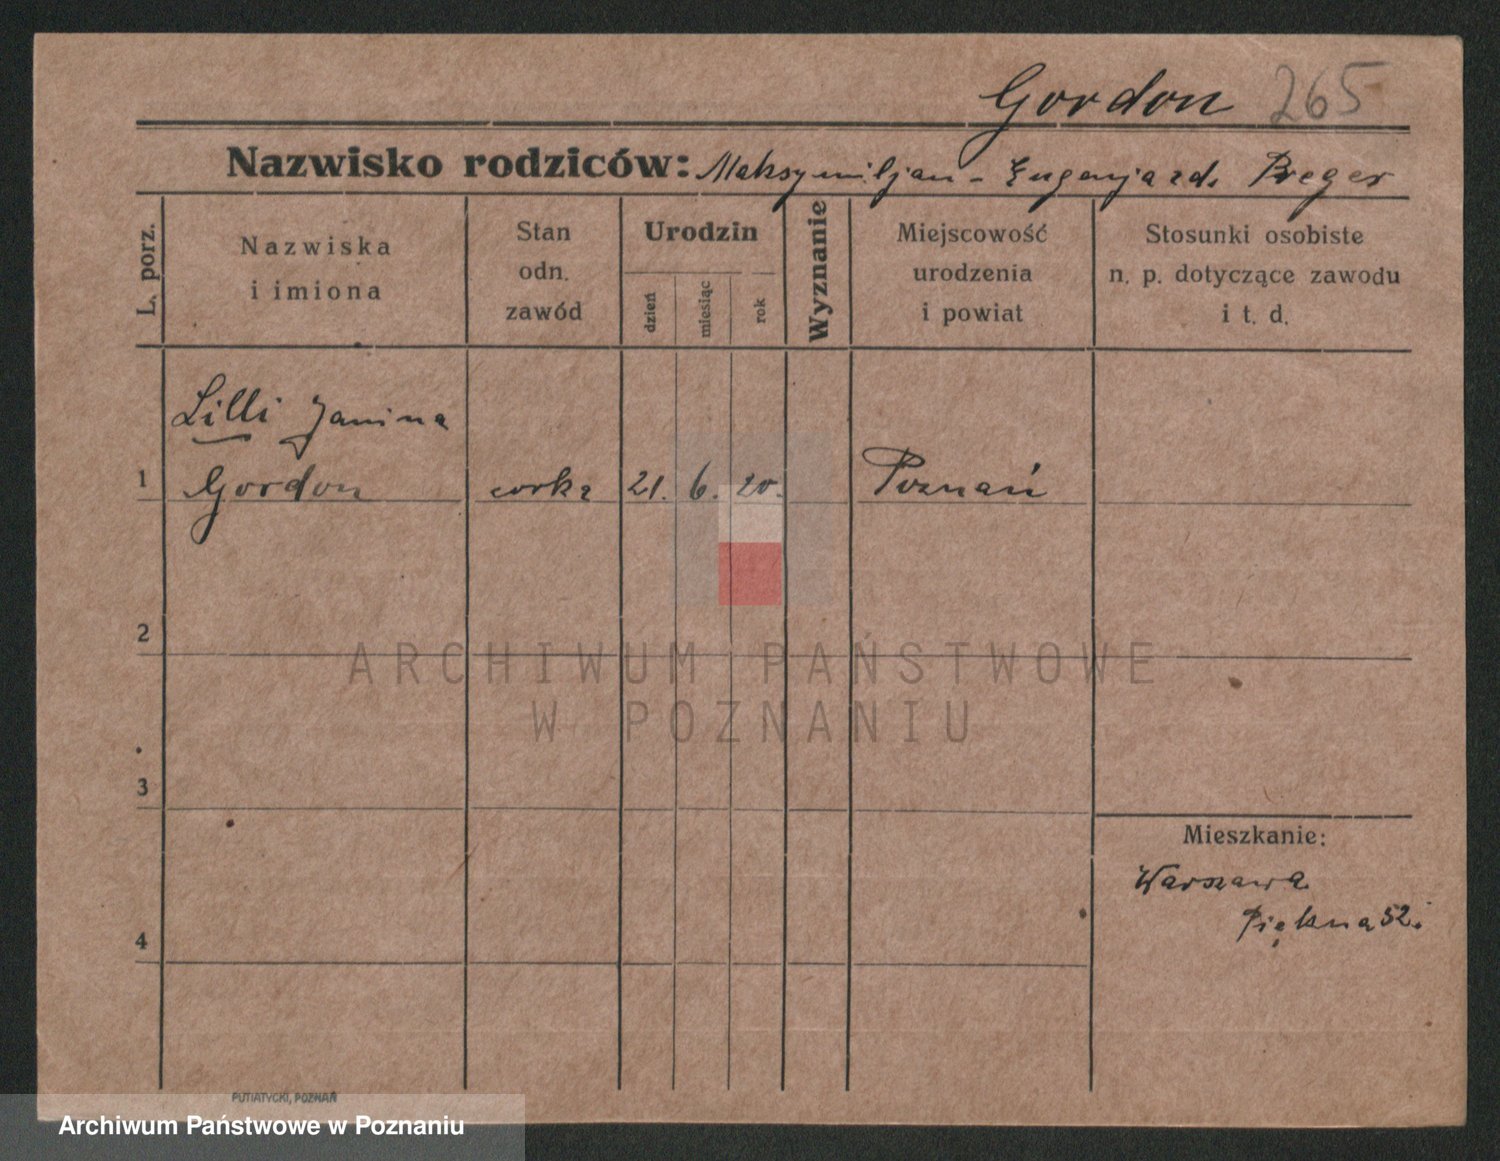 Gordon 265
Nazwisko rodziców: Maksymiljan - Eugenja zd. Preger
L. porz.
Nazwiska
i imiona
Stan
odn.
zawód
Urodzin
dzień
miesiąc
rok
Wyznanie
Miejscowość
urodzenia
i powiat
Stosunki osobiste
n. p. dotyczące zawodu
i t. d.
Lilli Janina
1 Gordon córka 21. 6. 20. Poznań
2
3
4
Mieszkanie:
Warszawa
Piękna 52.
ARCHIWUM PAŃSTWOWE
W POZNANIU
PUTIATYCKI, POZNAŃ
Archiwum Państwowe w Poznaniu